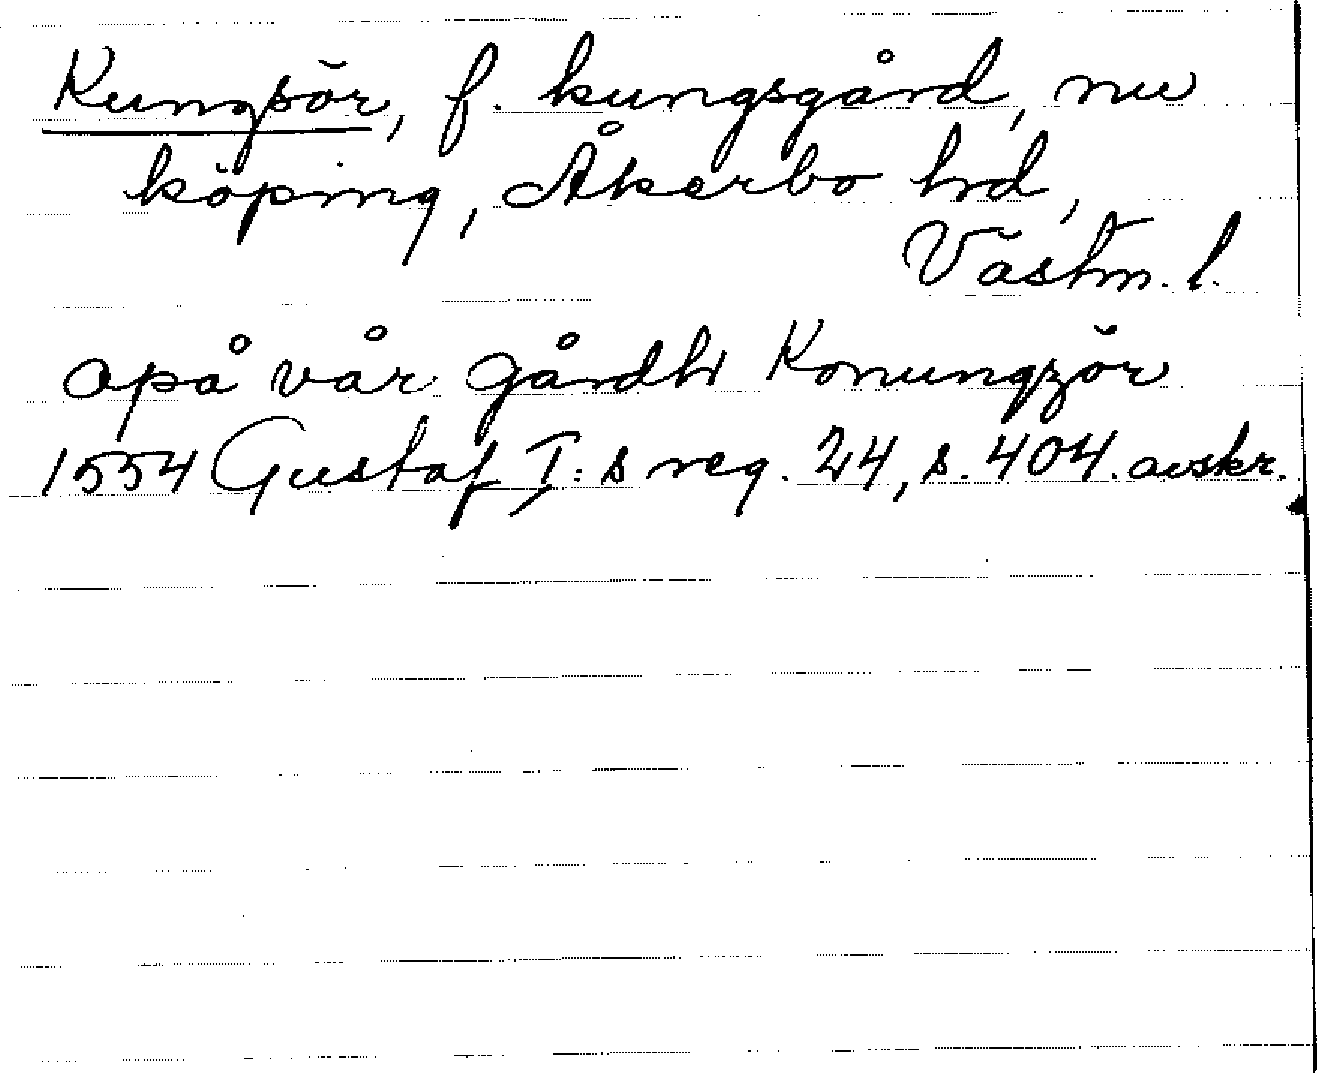 Kungsör, f. kungsgård, nu
köping, Åkerbo hd,
Västm. l.
opå vår gårdh Konungzör
1554 Gustaf I:s reg. 24, s. 404. avskr.